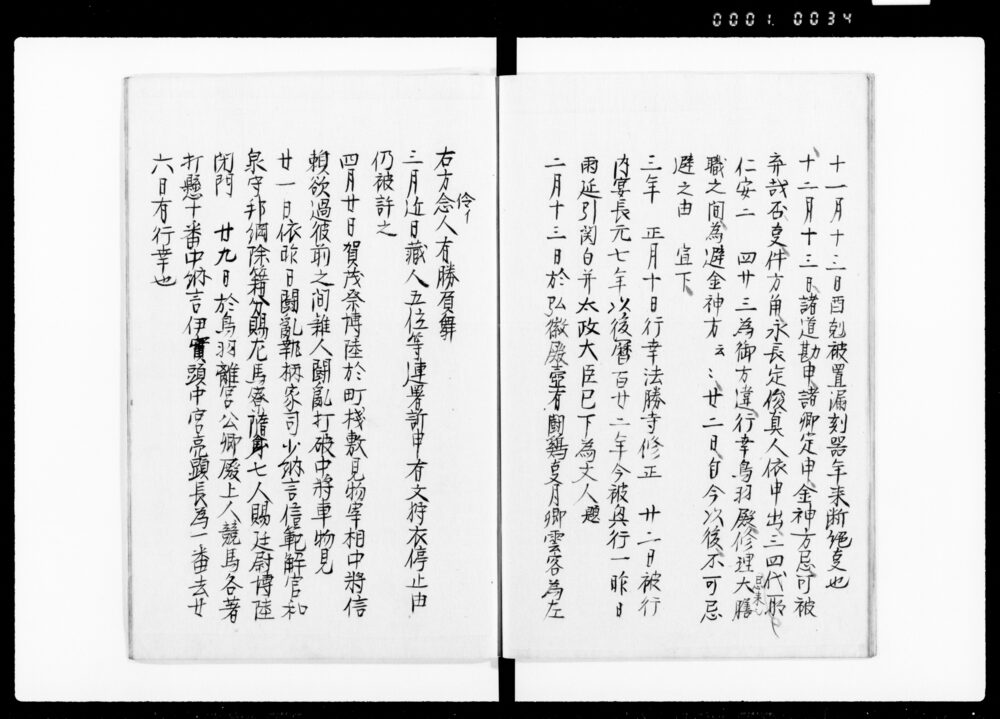 0001 0034
十一月十三日酉剋被置漏刻器年来断絶㕝也
十二月十三日諸道勘申諸卿定申金神方忌可被
弃哉否㕝件方角永長定俊真人依申出三四代所
忌来
仁安二 四廿三為御方違行幸鳥羽殿修理大膳
職之間為避金神方云々廿二日自今以後不可忌
避之由 宣下
三年 正月十日行幸法勝寺修正 廿二日被行
内宴長元七年以後暦百廿二年今被興行一昨日
雨延引関白并太政大臣已下為文人題
二月十三日於弘徽殿壺有闘鶏㕝月卿雲客為左
右方念人有勝負舞
伶イ
三月近日蔵人五位等連署訴申有文狩衣停止由
仍被許之
四月廿日賀茂祭博陸於町棧敷見物宰相中将信
頼欲過彼前之間雑人闘乱打破中将車物見
廿一日依昨日闘乱執柄家司少納言信範解官和
泉守邦綱除籍分賜左馬寮随身七人賜廷尉博陸
閇門 廿九日於鳥羽離宮公卿殿上人競馬各著
打懸十番中納言伊實頭中宮亮顕長為一番去廿
六日有行幸也